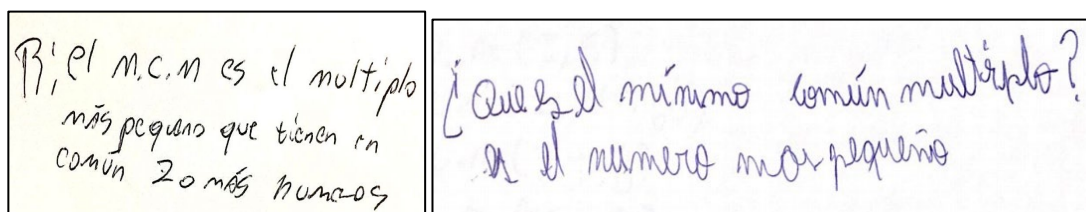 R; el M.C.M es el moltiplo
más pequeno que tienen en
común 2 o más numeros
¿Que es el mínimo común multiplo?
es el numero mas pequeño